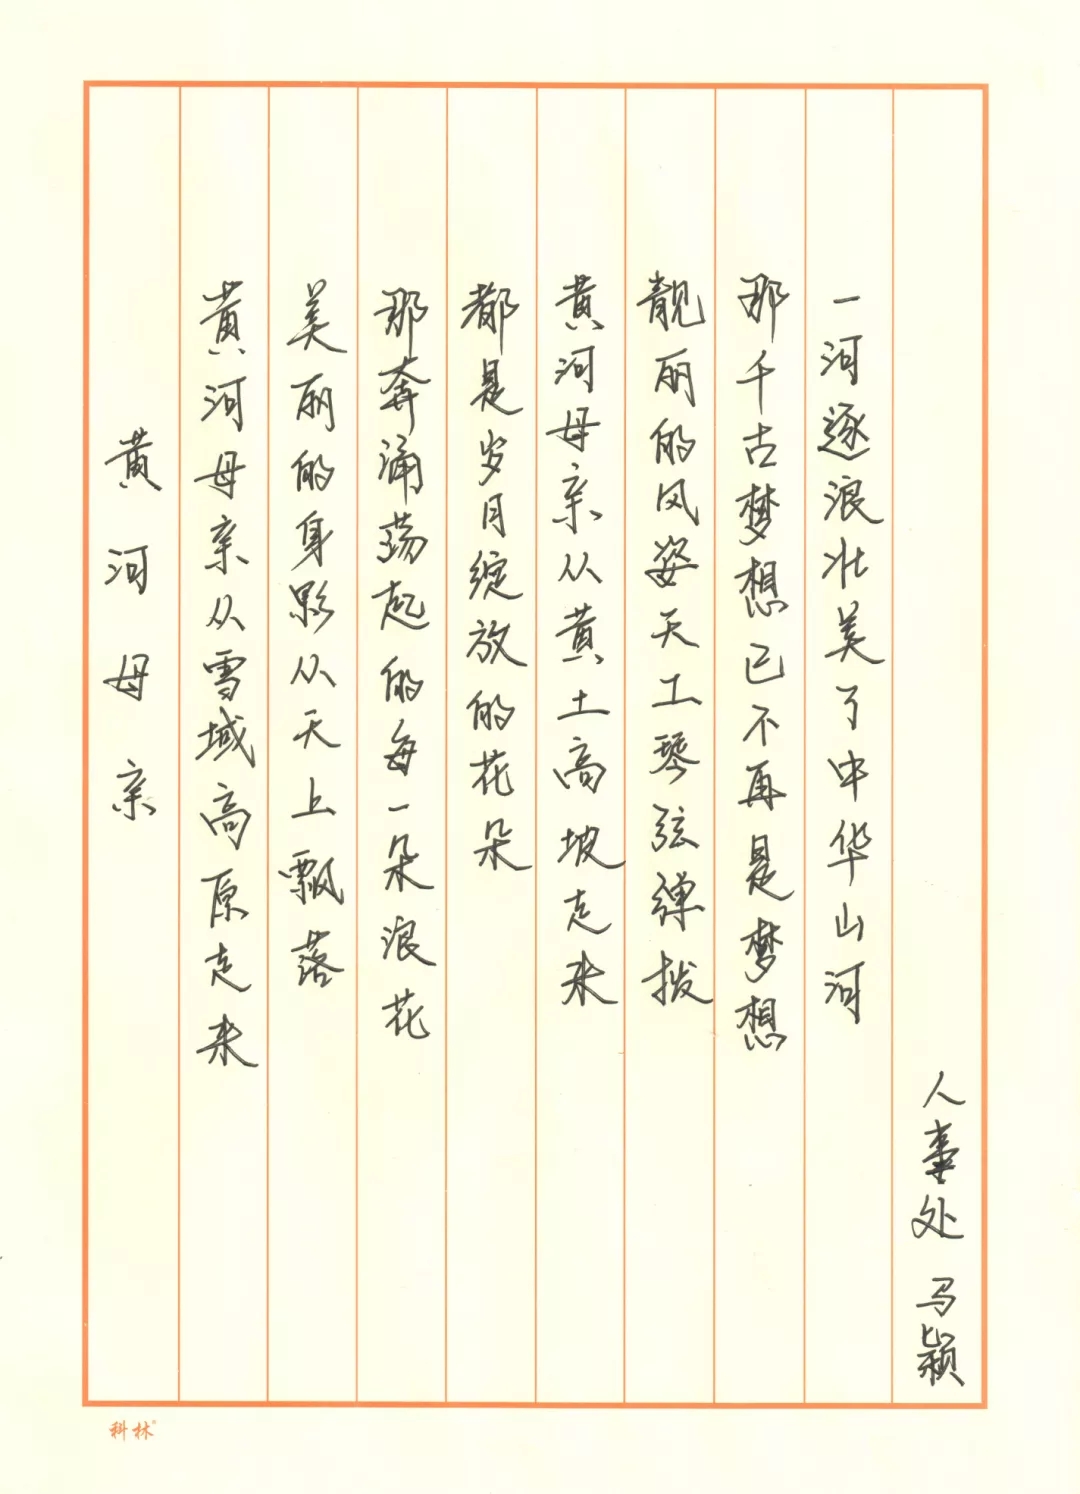 黄河母亲
黄河母亲从雪域高原走来
美丽的身影从天上飘落
那奔涌荡起的每一朵浪花
都是岁月绽放的花朵
黄河母亲从黄土高坡走来
靓丽的风姿天工琴弦弹拨
那千古梦想已不再是梦想
一河逐浪壮美了中华山河
人事处 马颖
科林®